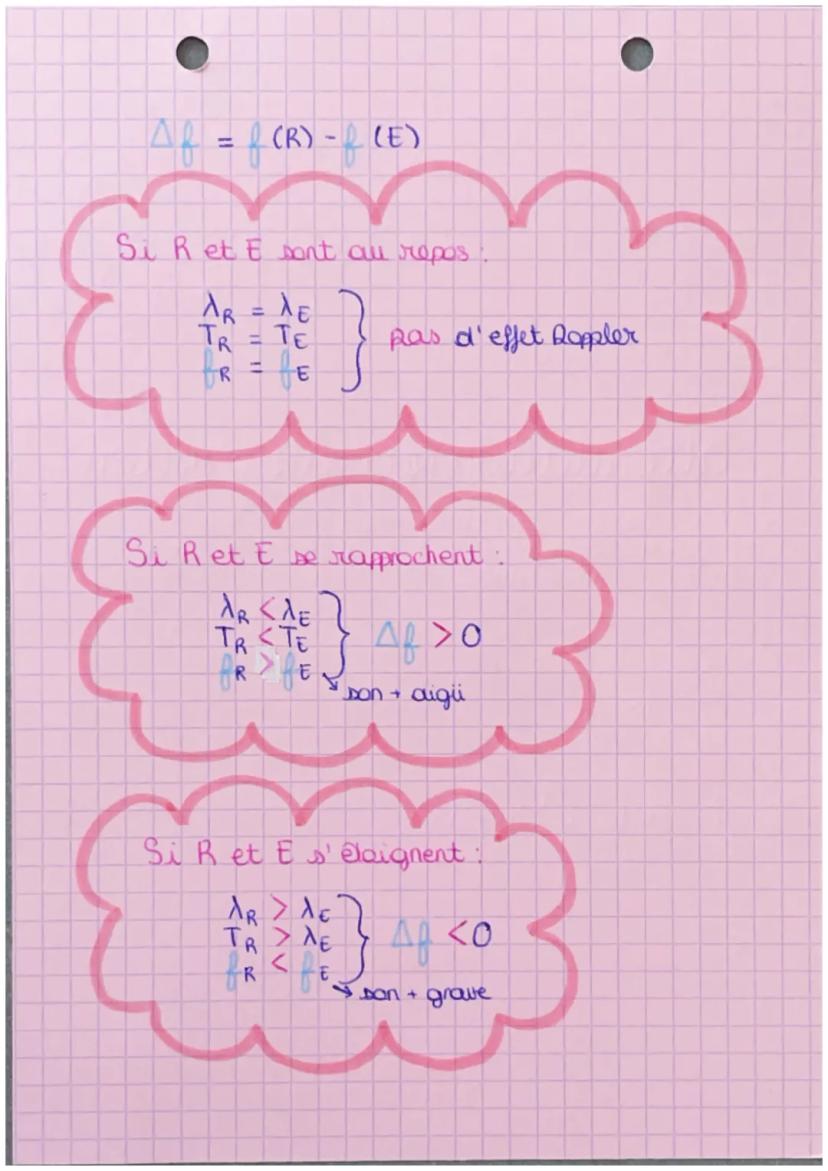 Δf = f(R) - f(E)
Si R et E sont au repos :
λR = λE
TR = TE
fR = fE
pas d'effet Doppler
Si R et E se rapprochent :
λR < λE
TR < TE
fR > fE
Δf > 0
son + aigü
Si R et E s'éloignent :
λR > λE
TR > λE
fR < fE
Δf < 0
son + grave